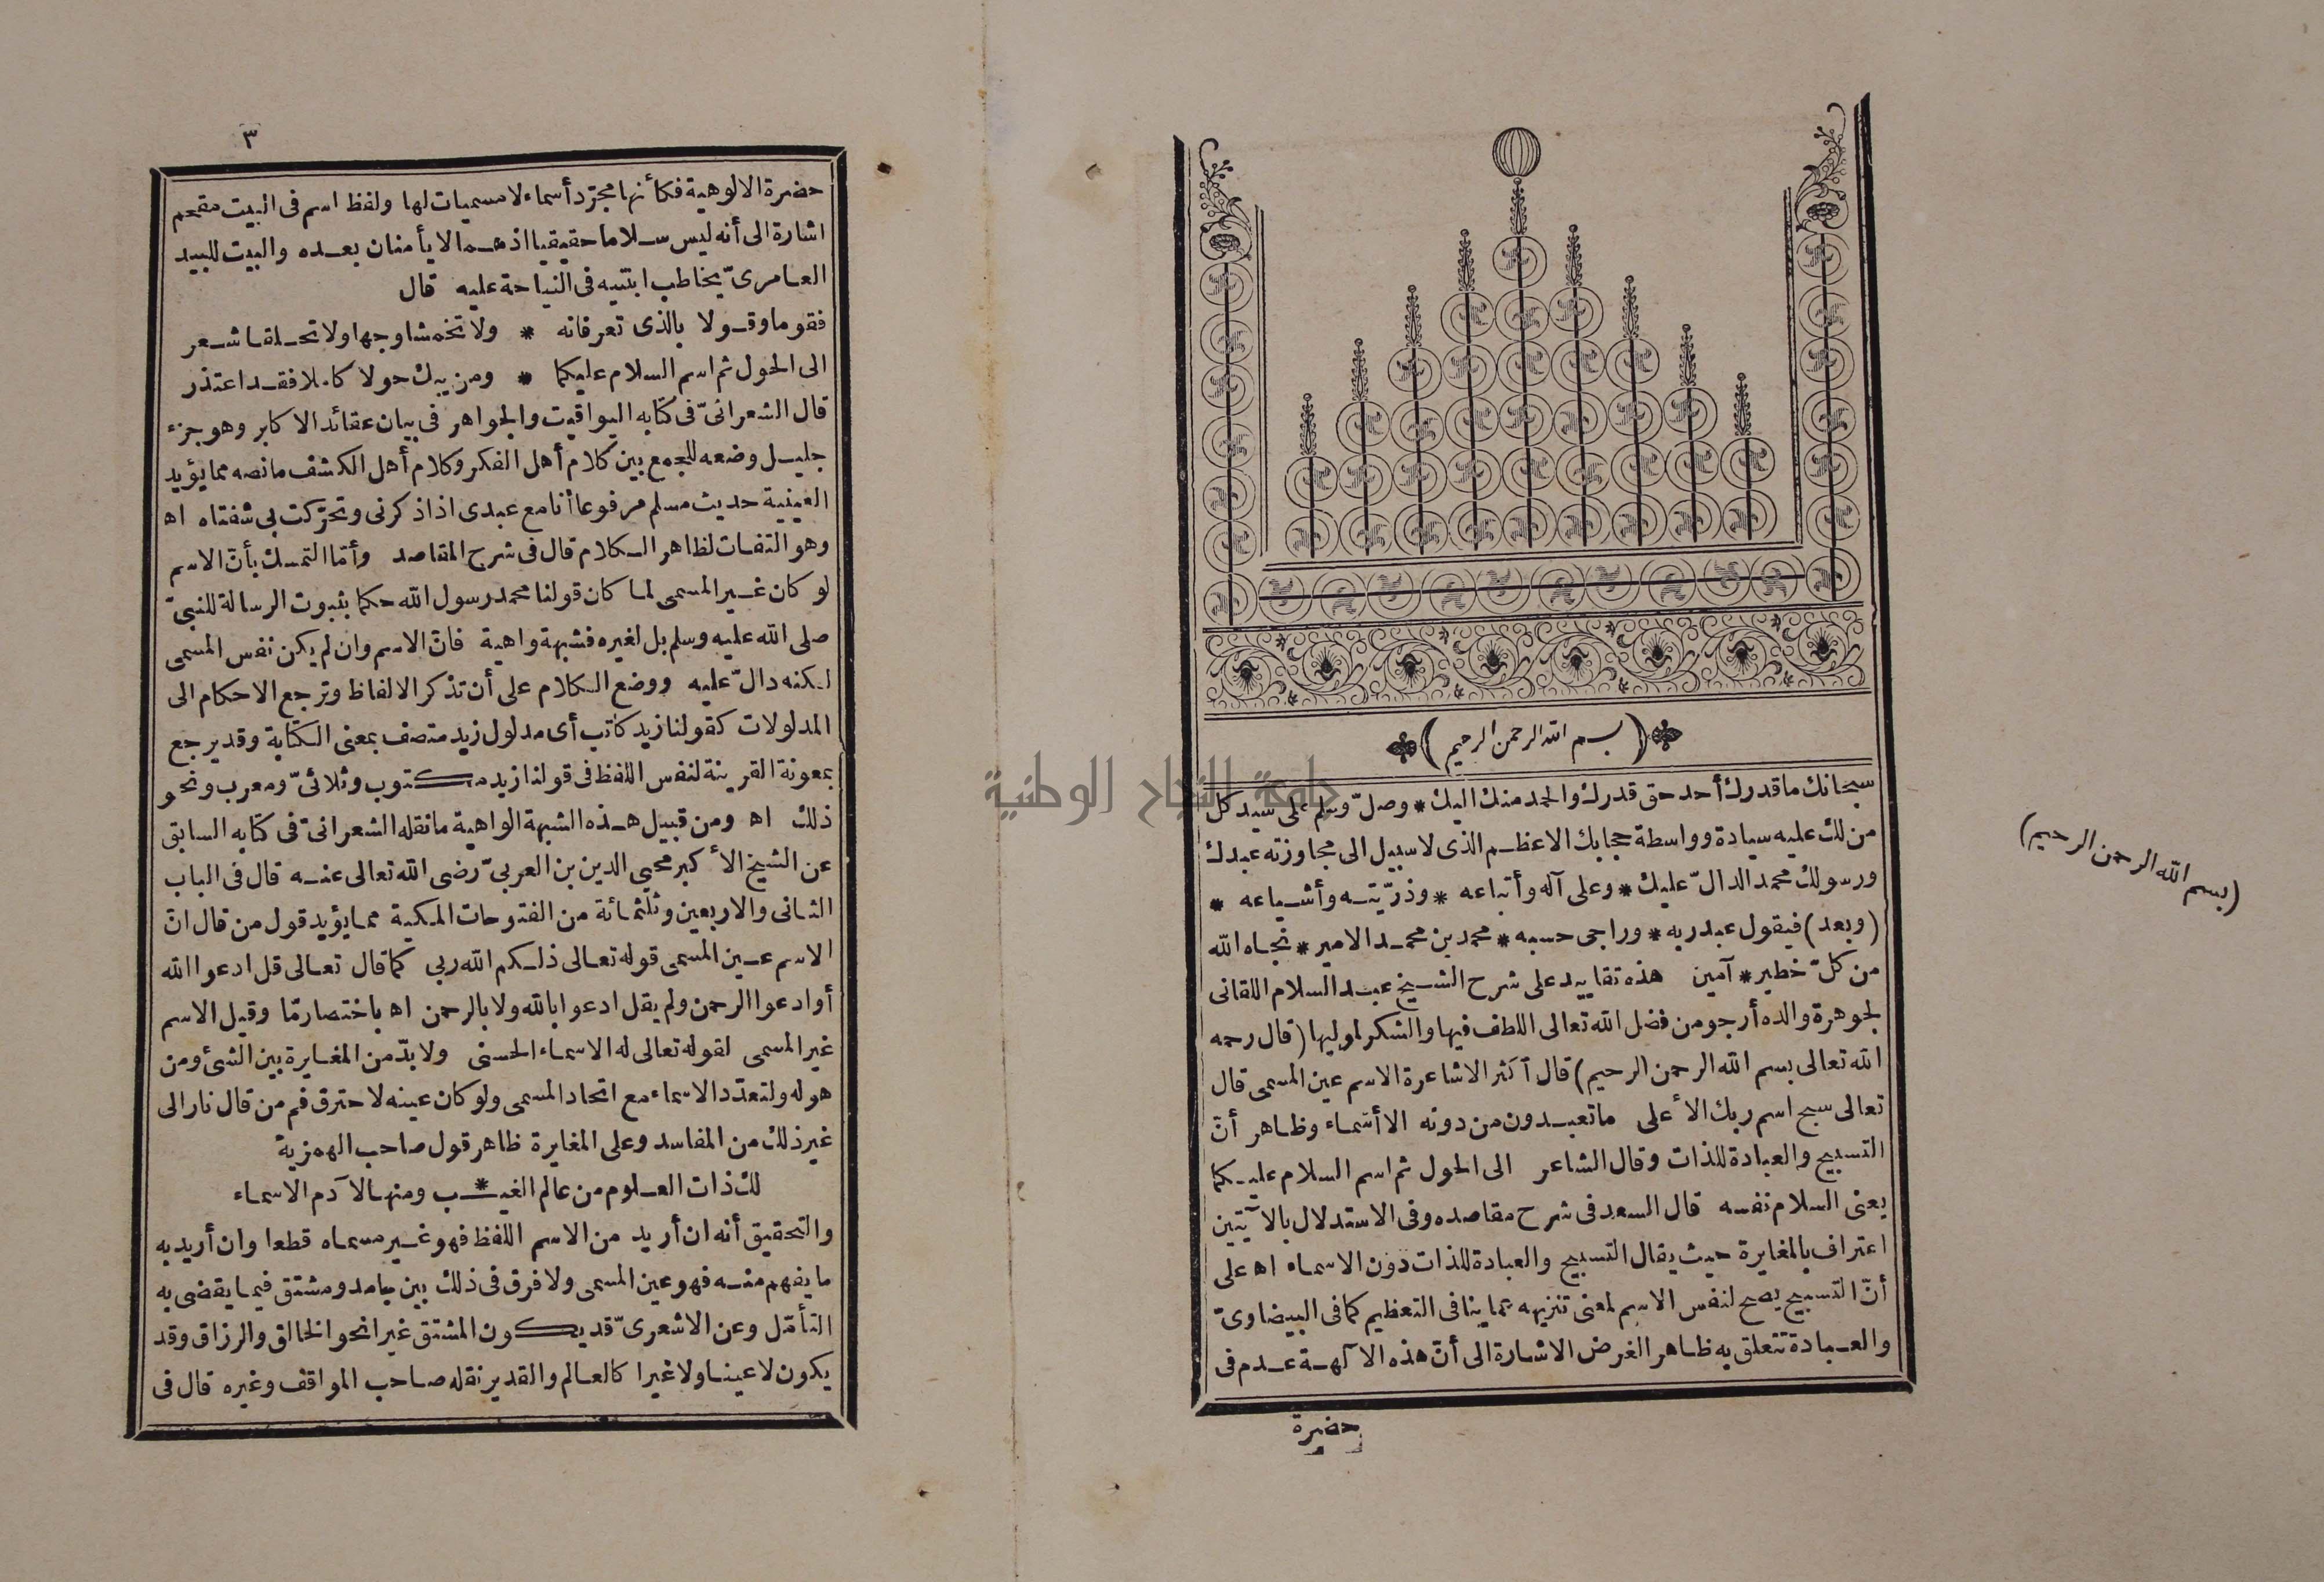 (بسم الله الرحمن الرحيم)
سبحانك ما قدرك أحد حق قدرك والحمد منك اليك * وصل وسلم على سيد كل
من لك عليه سيادة وواسطة حجابك الاعظم الذى لا سبيل الى مجاوزته عبدك
ورسولك محمد الدال عليك * وعلى آله وأتباعه * وذرّيته وأشياعه *
(وبعد) فيقول عبد ربه * وراجى حسبه * محمد بن محمد الامير * نجاه الله
من كلّ خطير * آمين هذه تقاييد على شرح الشيخ عبد السلام اللقانى
لجوهرة والده أرجو من فضل الله تعالى اللطف فيها والشكر لموليها (قال رحمه
الله تعالى بسم الله الرحمن الرحيم) قال أكثر الاشاعرة الاسم عين المسمى قال
تعالى سبح اسم ربك الأعلى ما تعبدون من دونه الا أسماء وظاهر أنّ
التسبيح والعبادة للذات وقال الشاعر الى الحول ثم اسم السلام عليكما
يعنى السلام نفسه قال السعد فى شرح مقاصده وفى الاستدلال بالآيتين
اعتراف بالمغايرة حيث يقال التسبيح والعبادة للذات دون الاسماء اه على
أنّ التسبيح يصح لنفس الاسم لمعنى تنزيهه عما ينافى التعظيم كما فى البيضاوىّ
والعبادة تتعلق به ظاهرا لغرض الاشارة الى أنّ هذه الآلهة عدم فى
حضرة
(بسم الله الرحمن الرحيم)
٣
حضرة الالوهية فكأنها مجرّد أسماء لا مسميات لها ولفظ اسم فى البيت مقحم
اشارة الى أنه ليس سلاما حقيقيا اذ هما لا يأمنان بعده والبيت للبيد
العامرىّ يخاطب ابنتيه فى النياحة عليه قال
فقوما وقولا بالذى تعرفانه * ولا تخمشا وجها ولا تحلقا شعر
الى الحول ثم اسم السلام عليكما * ومن يبك حولا كاملا فقد اعتذر
قال الشعرانىّ فى كتابه اليواقيت والجواهر فى بيان عقائد الاكابر وهو جزء
جليل وضعه للجمع بين كلام أهل الفكر وكلام أهل الكشف ما نصه مما يؤيد
العينية حديث مسلم مرفوعا أنا مع عبدى اذا ذكرنى وتحرّكت بى شفتاه اه
وهو التفات لظاهر الكلام قال فى شرح المقاصد وأمّا التمسك بأنّ الاسم
لو كان غير المسمى لما كان قولنا محمد رسول الله حكما بثبوت الرسالة للنبىّ
صلى الله عليه وسلم بل لغيره فشبهة واهية فانّ الاسم وان لم يكن نفس المسمى
لكنه دالّ عليه ووضع الكلام على أن تذكر الالفاظ وترجع الاحكام الى
المدلولات كقولنا زيد كاتب أى مدلول زيد متصف بمعنى الكتابة وقد يرجع
بمعونة القرينة لنفس اللفظ فى قولنا زيد مكتوب وثلاثىّ ومعرب ونحو
ذلك اه ومن قبيل هذه الشبهة الواهية ما نقله الشعرانىّ فى كتابه السابق
عن الشيخ الأكبر محيى الدين بن العربىّ رضى الله تعالى عنه قال فى الباب
الثانى والاربعين وثلثمائة من الفتوحات المكية مما يؤيد قول من قال انّ
الاسم عين المسمى قوله تعالى ذلكم الله ربى كما قال تعالى قل ادعوا الله
أو ادعوا الرحمن ولم يقل ادعوا بالله ولا بالرحمن اه باختصار مّا وقيل الاسم
غير المسمى لقوله تعالى له الاسماء الحسنى ولا بدّ من المغايرة بين الشئ ومن
هو له ولتعدّد الاسماء مع اتحاد المسمى ولو كان عينه لاحترق فم من قال نار الى
غير ذلك من المفاسد وعلى المغايرة ظاهر قول صاحب الهمزية
لك ذات العلوم من عالم الغيـ*ـب ومنها لآدم الاسماء
والتحقيق أنه ان أريد من الاسم اللفظ فهو غير مسماه قطعا وان أريد به
ما يفهم منه فهو عين المسمى ولا فرق فى ذلك بين جامد ومشتق فيما يقضى به
التأمّل وعن الاشعرىّ قد يكون المشتق غيرا نحو الخالق والرزاق وقد
يكون لا عينا ولا غيرا كالعالم والقدير نقله صاحب المواقف وغيره قال فى
جامعة النجاح الوطنية